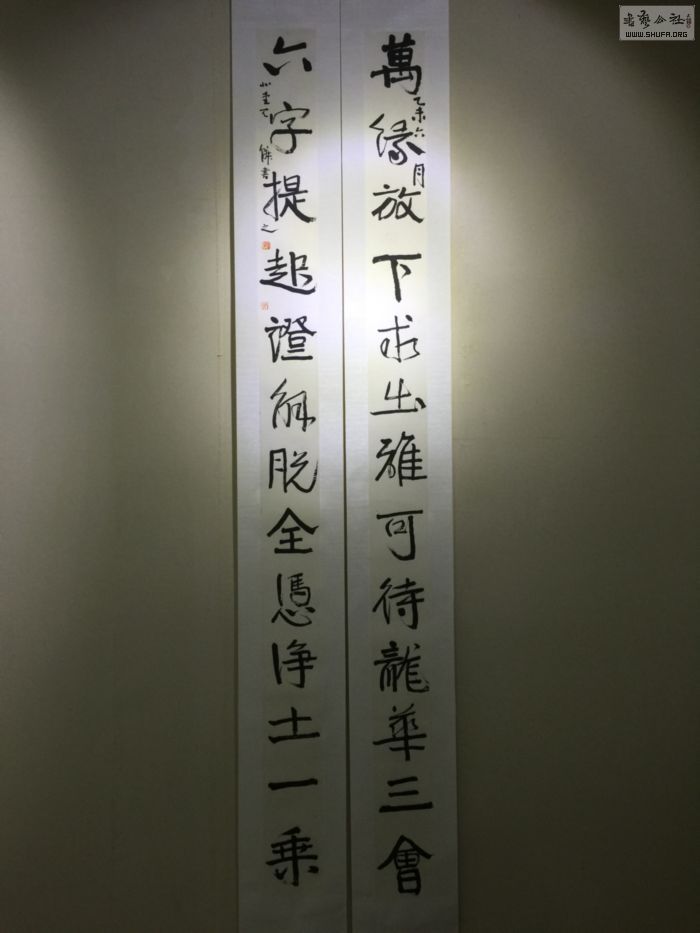 萬緣放下求出雖可待龍華三會
乙未六月
六字提起證解脫全憑淨土一乘
書之
書藝公社
WWW.SHUFA.ORG